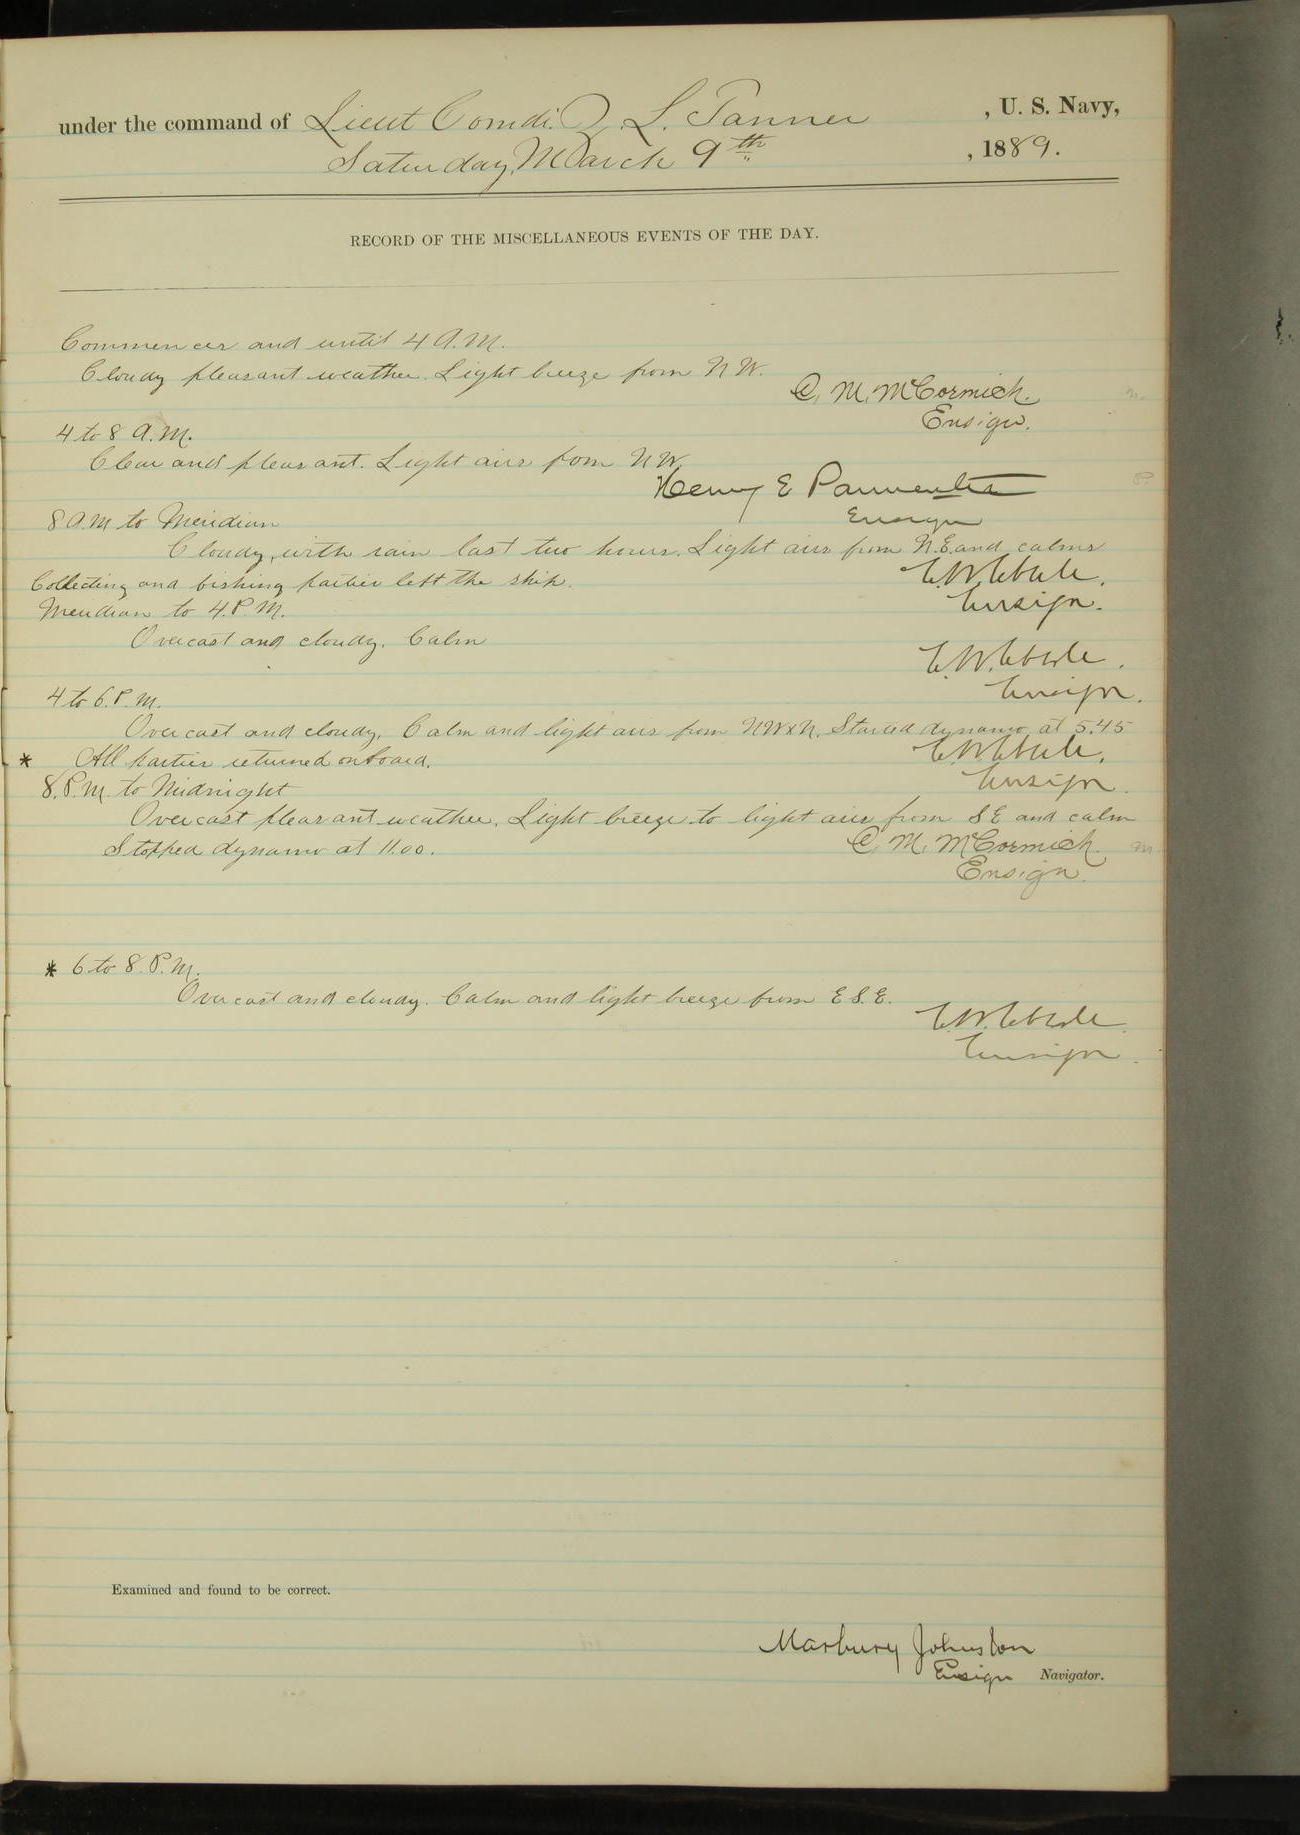 under the command of Lieut Comdr. Z. L. Tanner, U. S. Navy,
Saturday, March 9th, 1889.
RECORD OF THE MISCELLANEOUS EVENTS OF THE DAY.
Commences and until 4 A.M.
Cloudy pleasant weather. Light breeze from N W.
C. M. McCormick.
Ensign.
4 to 8 A.M.
Clear and pleasant. Light airs from N W.
Henry E Parmenter
Ensign
8 A.M to Meridian
Cloudy, with rain last two hours. Light airs from N.E. and calms
Collecting and fishing parties left the ship.
E.W. Eberle.
Ensign.
Meridian to 4. P. M.
Overcast and cloudy. Calm
E.W. Eberle.
Ensign.
4 to 6. P. M.
Overcast and cloudy. Calm and light airs from NWxN. Started dynamo at 5.45
* All parties returned onboard.
E.W. Eberle.
Ensign.
8. P.M. to Midnight
Overcast pleasant weather. Light breeze to light airs from S E and calm
Stopped dynamo at 11.00.
C. M. McCormick.
Ensign.
* 6 to 8. P. M.
Overcast and cloudy. Calm and light breeze from E S. E.
E.W. Eberle.
Ensign.
Examined and found to be correct.
Marbury Johnston
Ensign Navigator.